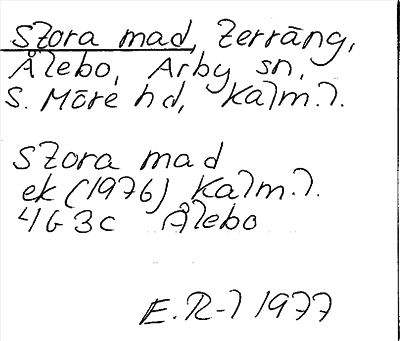 Stora mad, Terräng,
Ålebo, Arby sn,
S. Möre hd, Kalm. l.
Stora mad
ek (1976) Kalm. l.
4G 3c Ålebo
E.R-l 1977